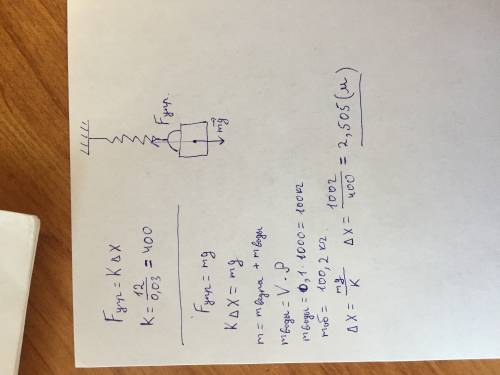 Fупр.
mg
Fупр = KΔX
K = 12/0,03 = 400
Fупр = mg
KΔX = mg
m = mведра + mводы
mводы = V · ρ
mводы = 0,1 · 1000 = 100кг
mоб = 100,2 кг.
ΔX = mg/K ΔX = 1002/400 = 2,505 (м)